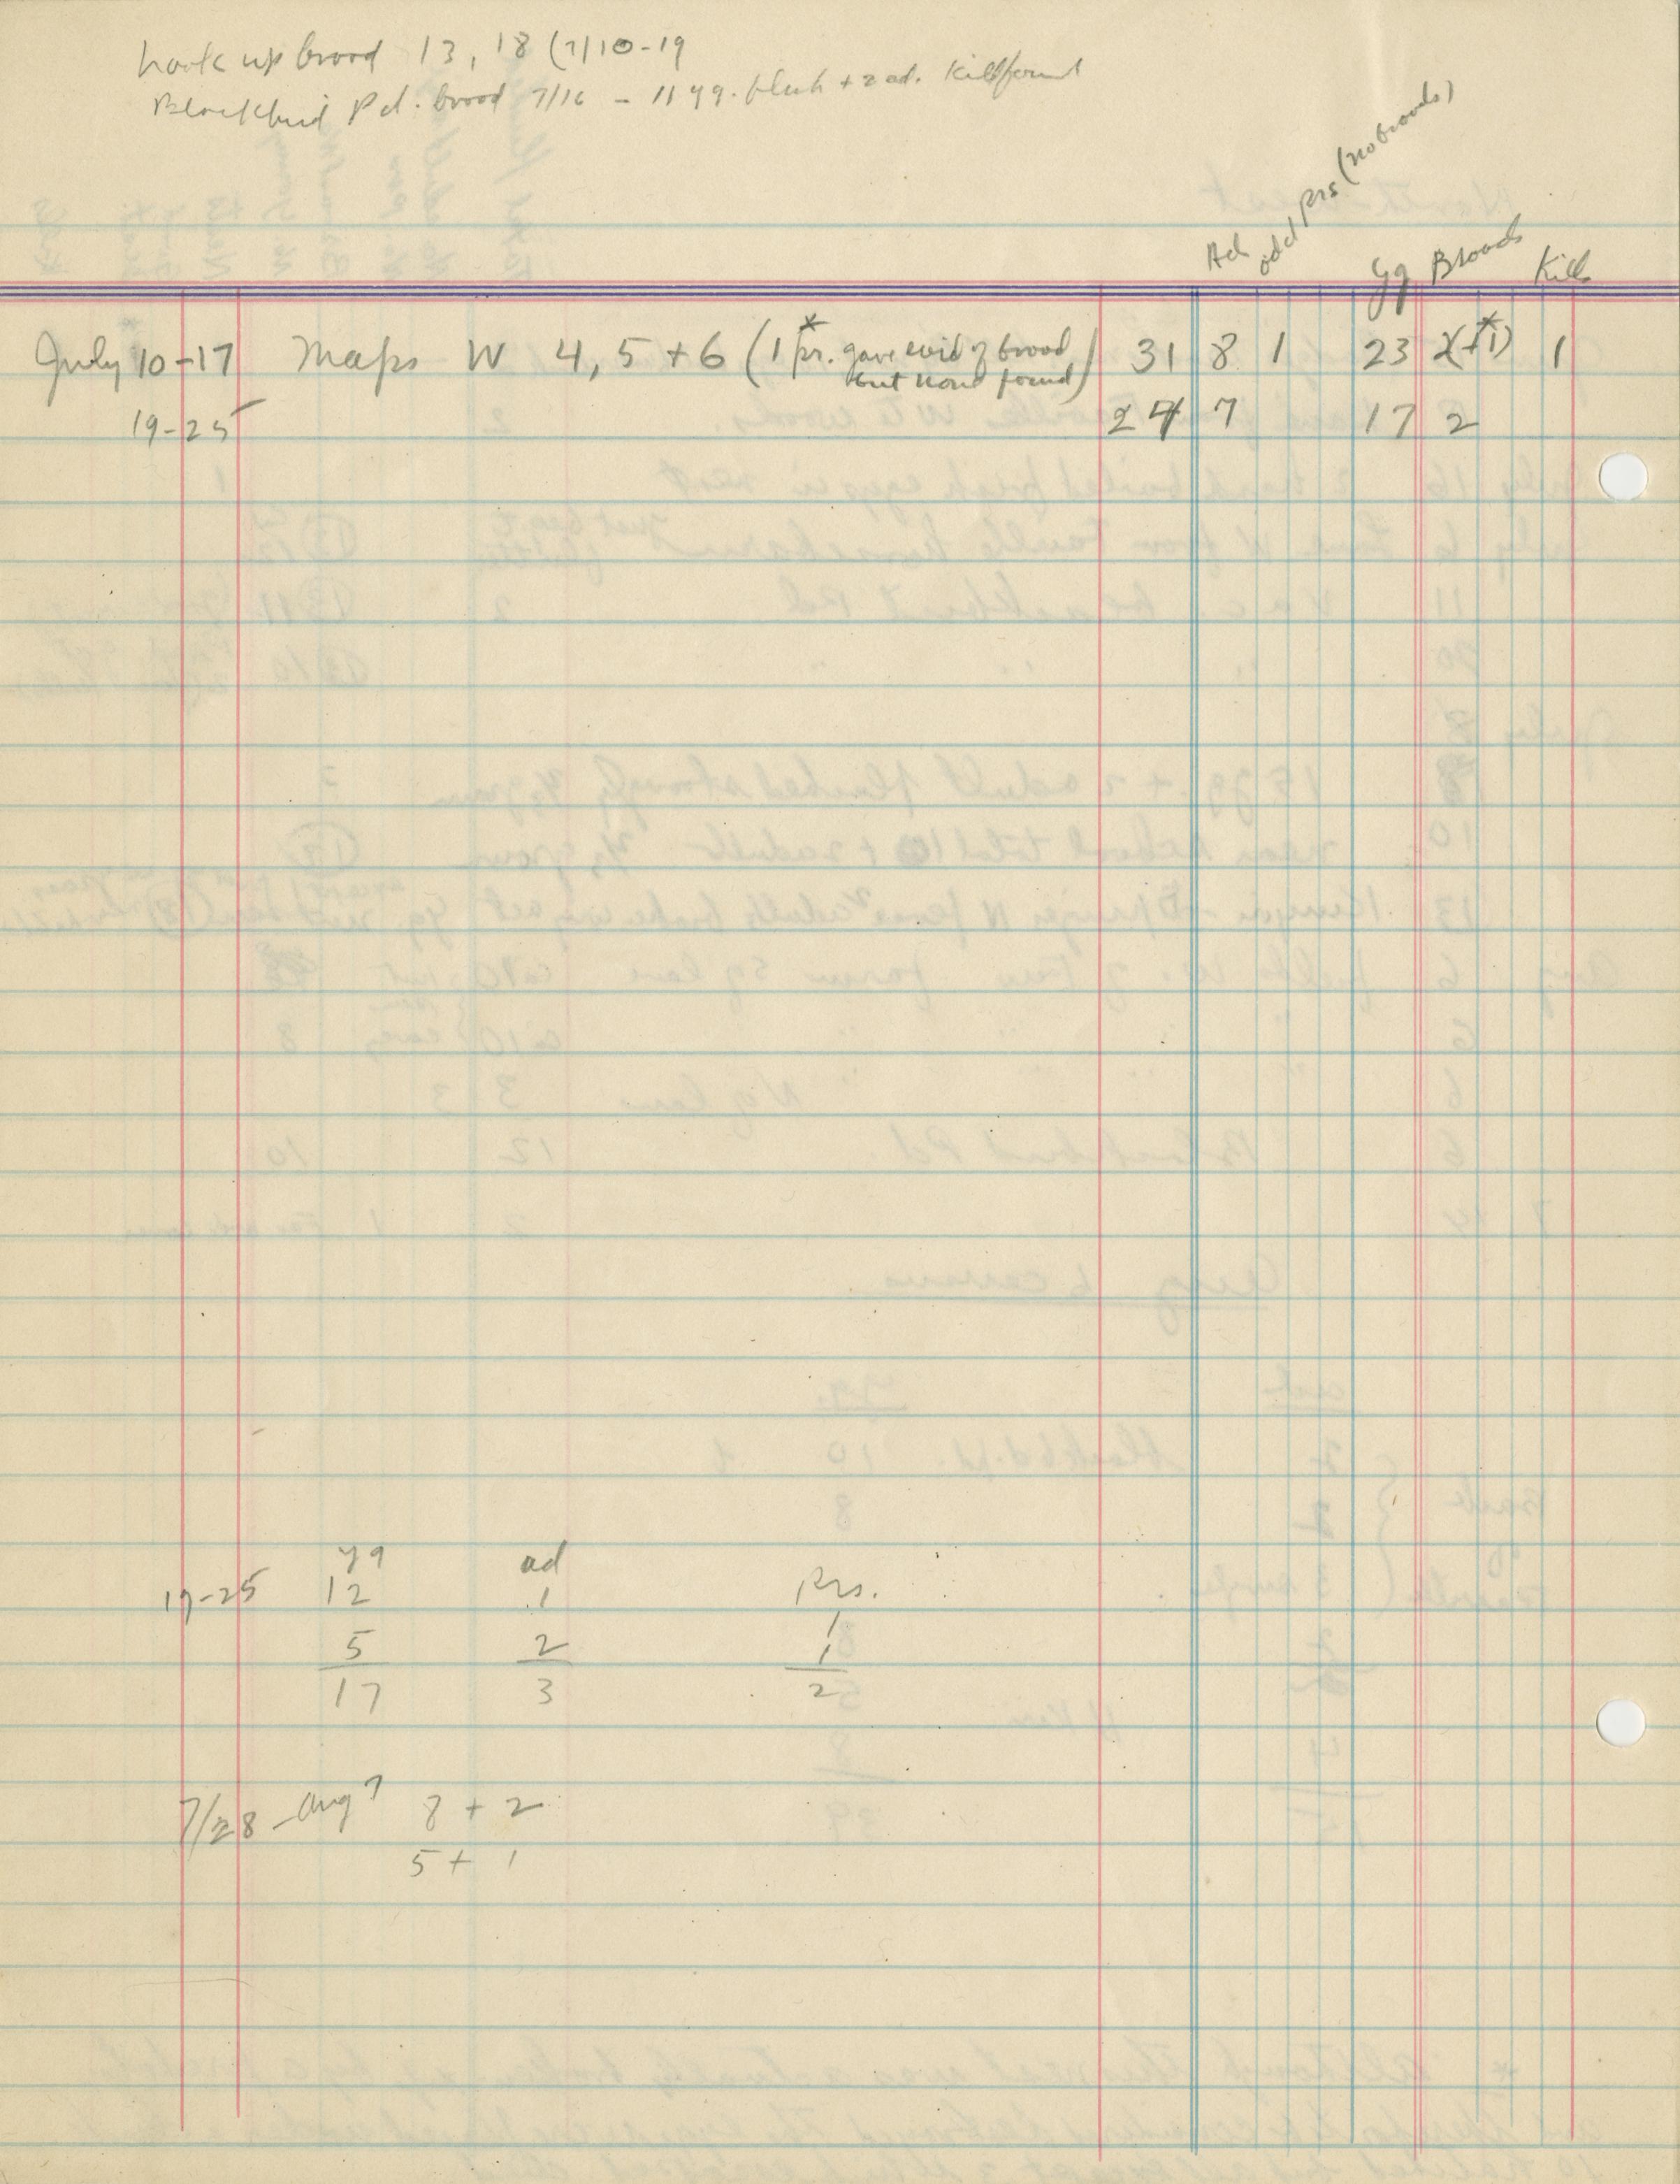 Look up brood 13, 18 (7/10-19
Blackbird Pd. brood 7/16 - 11 yg. flush + 2 ad. Kill found
Ad odd prs (no broods) Yg Broods Kills
July 10-17 Maps W 4, 5 + 6 (1 pr.* gave evid of brood but none found) 31 8 1 23 2(+1)* 1
19-25 24 7 17 2
yg ad
19-25 12 1 Prs.
1
5 2 1
17 3 2
7/28 - Aug 7 8 + 2
5 + 1